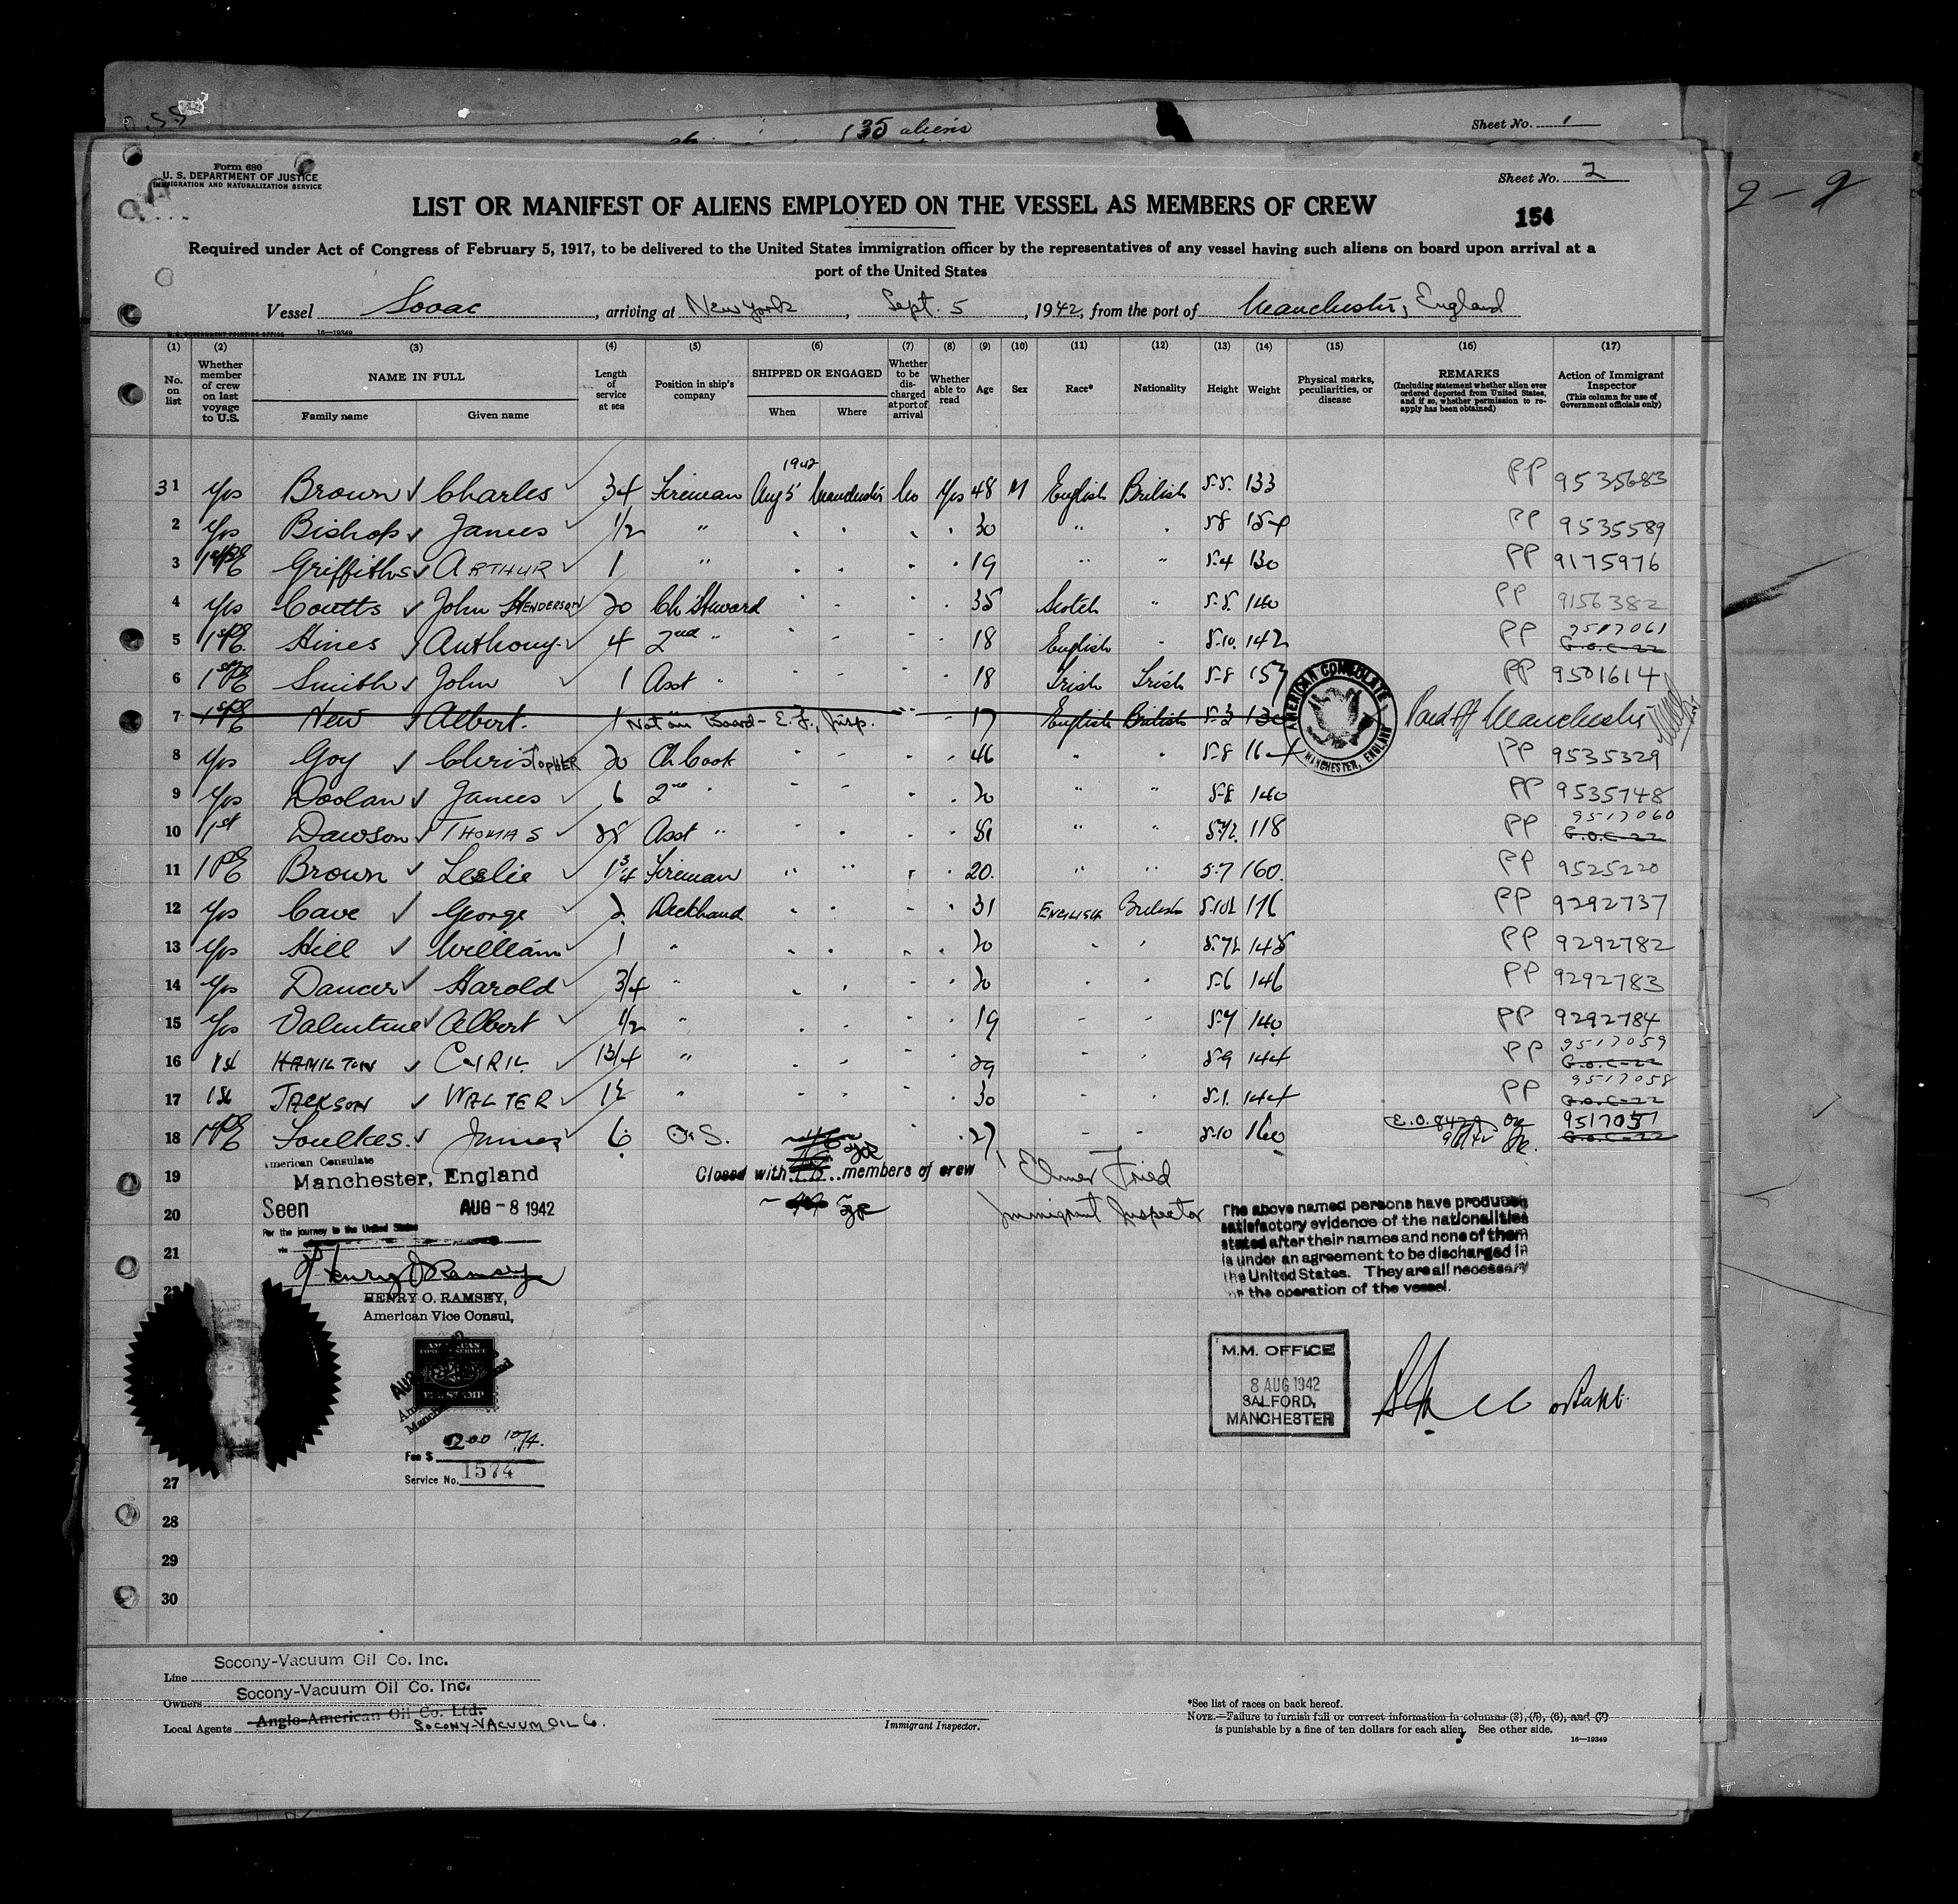 135 aliens
Sheet No. 1
Form 680
U. S. DEPARTMENT OF JUSTICE
IMMIGRATION AND NATURALIZATION SERVICE
Sheet No. 2
LIST OR MANIFEST OF ALIENS EMPLOYED ON THE VESSEL AS MEMBERS OF CREW
154
Required under Act of Congress of February 5, 1917, to be delivered to the United States immigration officer by the representatives of any vessel having such aliens on board upon arrival at a
port of the United States
Vessel Sovac, arriving at New York, Sept. 5, 1942, from the port of Manchester, England
U. S. GOVERNMENT PRINTING OFFICE 16—19349
(1) (2) (3) (4) (5) (6) (7) (8) (9) (10) (11) (12) (13) (14) (15) (16) (17)
No. on list Whether member of crew on last voyage to U.S. NAME IN FULL Family name Given name Length of service at sea Position in ship's company SHIPPED OR ENGAGED When Where Whether to be discharged at port of arrival Whether able to read Age Sex Race* Nationality Height Weight Physical marks, peculiarities, or disease REMARKS (Including statement whether alien ever ordered deported from United States, and if so, whether permission to reapply has been obtained) Action of Immigrant Inspector (This column for use of Government officials only)
1942
31 Yes Brown Charles 34 Fireman Aug 5 Manchester No Yes 48 M English British 5-5 133 PP 9535683
2 Yes Bishop James 1/2 " 30 " 5-8 154 PP 9535589
3 Griffiths ARTHUR 1 " 19 " " 5-4 130 PP 9175976
4 Yes Coutts John HENDERSON 20 Ch Steward 35 Scotch " 5-5 140 PP 9156382
5 Hines Anthony 4 2nd " 18 English 5-10 142 PP 9517061
G.O.C-22
6 Smith John 1 Asst " 18 Irish Irish 5-8 157 PP 9501614
7 New Albert. 1 Not on Board - E.F., Insp. 17 English British 5-3 Paid off Manchester
AMERICAN CONSULATE MANCHESTER, ENGLAND
8 Yes Goy ChrisTOPHER 20 Ch Cook 46 5-8 164 PP 9535329
9 Yes Doolan James 6 2nd 20 " " 5-8 140 PP 9535748
10 1st Dawson THOMAS 28 Asst " 118 PP 9517060
G.O.C-22
11 1PE Brown Leslie 1 3/4 Fireman " " 20. " " 5-7 160. PP 9525220
12 Yes Cave George 2 Deckhand 31 ENGLISH British 176 PP 9292737
13 Yes Hill William 1 " 20 148 PP 9292782
14 Yes Dancer Harold 3/4 " 20 5-6 146 PP 9292783
15 Yes Valentine Albert 1/2 " 19 5-7 140 PP 9292784
16 1st HAMILTON CYRIL 1 3/4 " 29 5-9 144 PP 9517059
G.O.C-22
17 1st JACKSON WALTER 1 1/2 " 30 144 PP 9517058
G.O.C-22
18 Foulkes. James 6 O.S. 27 5-10 160 E.O. 8429 OK 9517057
9/6/42 G.O.C-22
19 American Consulate
Manchester, England
Closed with members of crew
Elmer Fried
Immigrant Inspector
20 Seen AUG - 8 1942
For the journey to the United States
via
21
Henry O Ramsey
HENRY O. RAMSEY,
American Vice Consul,
The above named persons have produced
satisfactory evidence of the nationalities
stated after their names and none of them
is under an agreement to be discharged in
the United States. They are all necessary
for the operation of the vessel.
AMERICAN FOREIGN SERVICE
FEE STAMP
M.M. OFFICE
8 AUG 1942
SALFORD,
MANCHESTER
Fee $ 2.00
Service No. 1574
27
28
29
30
Line Socony-Vacuum Oil Co. Inc.
Owners Socony-Vacuum Oil Co. Inc.
Local Agents Anglo-American Oil Co. Ltd. SOCONY-VACUUM OIL Co.
Immigrant Inspector.
*See list of races on back hereof.
NOTE.—Failure to furnish full or correct information in columns (3), (5), (6), and (7)
is punishable by a fine of ten dollars for each alien. See other side.
16—19349